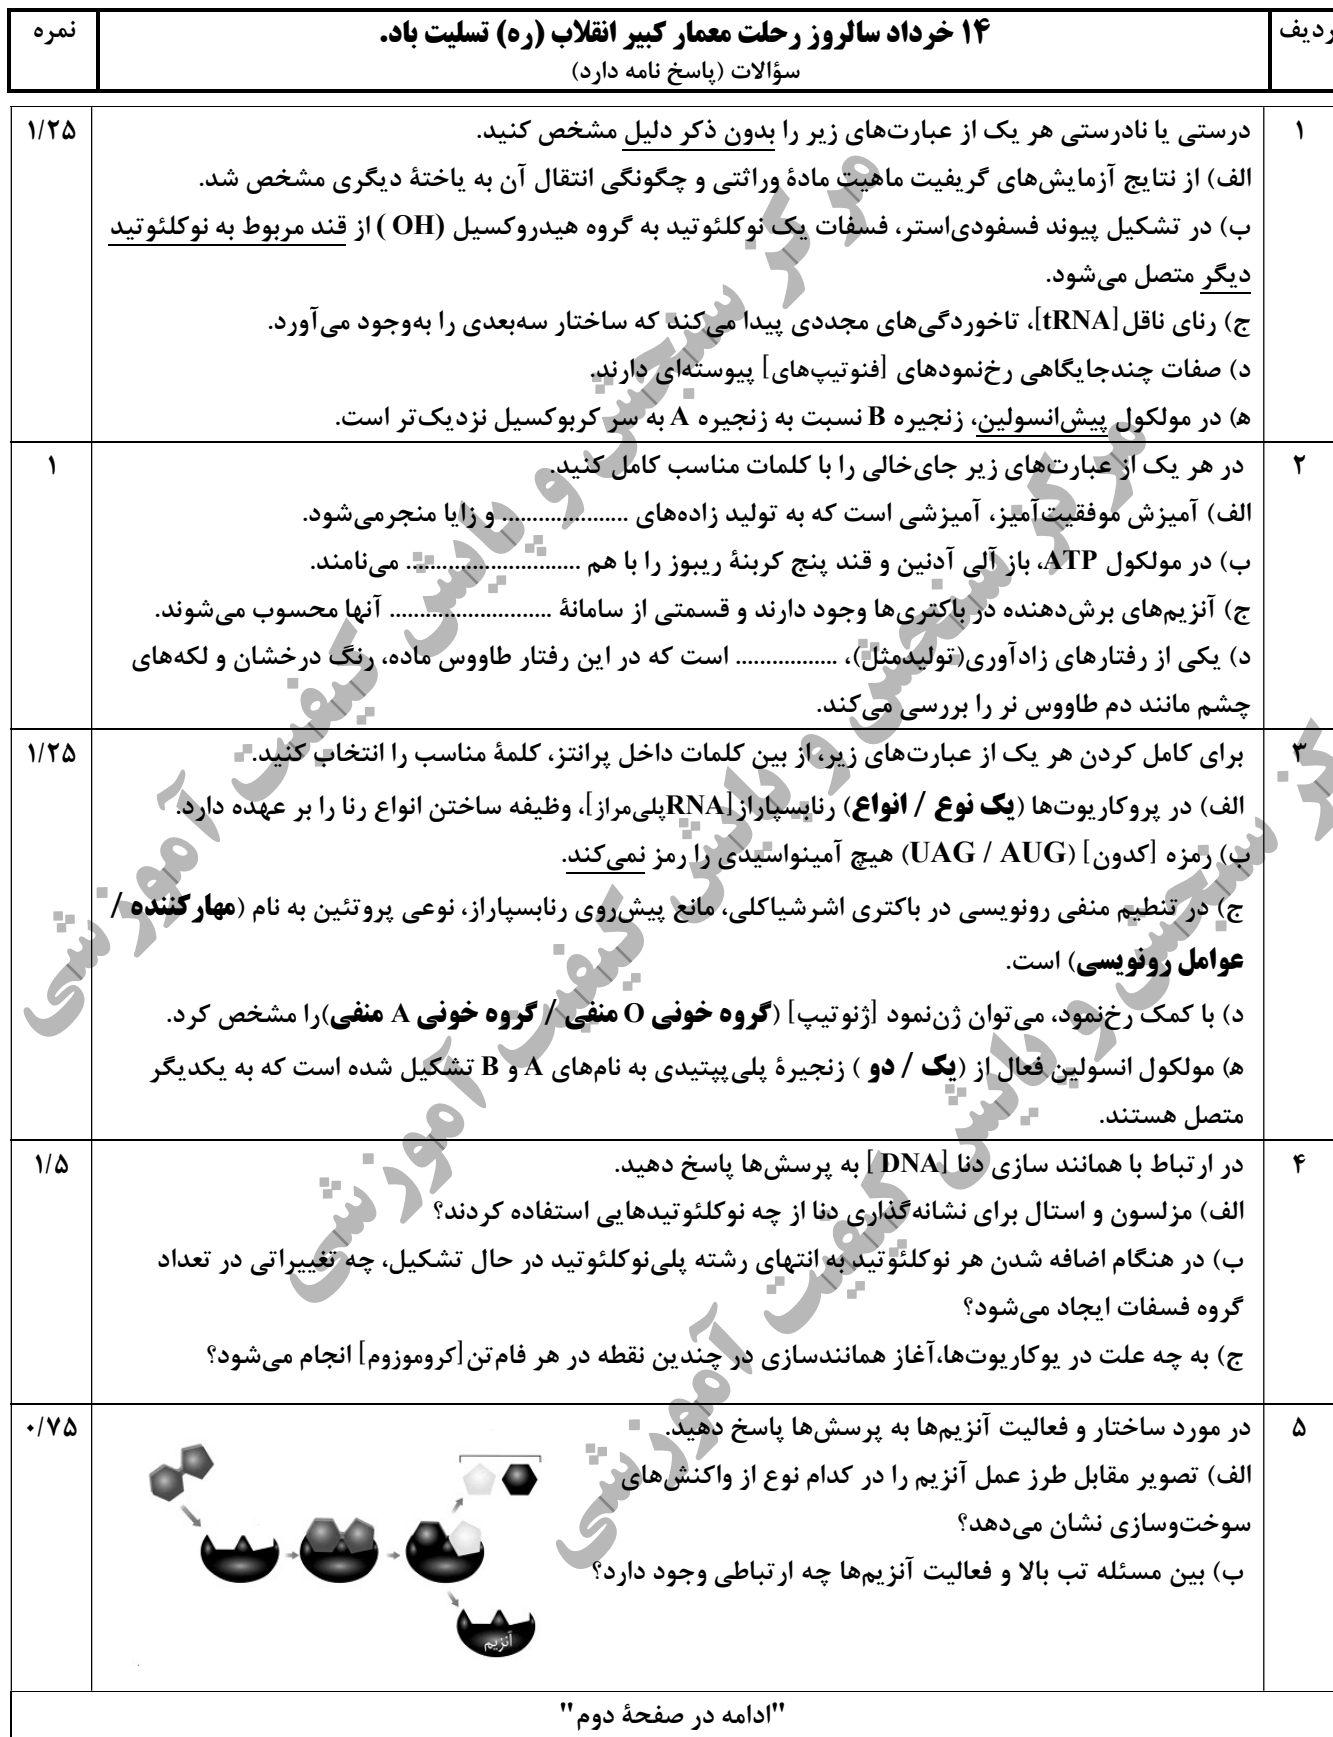 ردیف
۱۴ خرداد سالروز رحلت معمار کبیر انقلاب (ره) تسلیت باد.
نمره
سؤالات (پاسخ نامه دارد)
۱
درستی یا نادرستی هر یک از عبارت‌های زیر را بدون ذکر دلیل مشخص کنید.
۱/۲۵
الف) از نتایج آزمایش‌های گریفیت ماهیت مادهٔ وراثتی و چگونگی انتقال آن به یاختهٔ دیگری مشخص شد.
ب) در تشکیل پیوند فسفودی‌استر، فسفات یک نوکلئوتید به گروه هیدروکسیل (OH ) از قند مربوط به نوکلئوتید
دیگر متصل می‌شود.
ج) رنای ناقل[tRNA]، تاخوردگی‌های مجددی پیدا می‌کند که ساختار سه‌بعدی را به‌وجود می‌آورد.
د) صفات چندجایگاهی رخ‌نمودهای [فنوتیپ‌های] پیوسته‌ای دارند.
ه) در مولکول پیش‌انسولین، زنجیره B نسبت به زنجیره A به سر کربوکسیل نزدیک‌تر است.
۲
در هر یک از عبارت‌های زیر جای‌خالی را با کلمات مناسب کامل کنید.
۱
الف) آمیزش موفقیت‌آمیز، آمیزشی است که به تولید زاده‌های ..................... و زایا منجرمی‌شود.
ب) در مولکول ATP، باز آلی آدنین و قند پنج کربنهٔ ریبوز را با هم ............................. می‌نامند.
ج) آنزیم‌های برش‌دهنده در باکتری‌ها وجود دارند و قسمتی از سامانهٔ ........................... آنها محسوب می‌شوند.
د) یکی از رفتارهای زادآوری(تولیدمثل)، ................. است که در این رفتار طاووس ماده، رنگ درخشان و لکه‌های
چشم مانند دم طاووس نر را بررسی می‌کند.
۳
برای کامل کردن هر یک از عبارت‌های زیر، از بین کلمات داخل پرانتز، کلمهٔ مناسب را انتخاب کنید.
۱/۲۵
الف) در پروکاریوت‌ها (یک نوع / انواع) رنابسپاراز[RNAپلی‌مراز]، وظیفه ساختن انواع رنا را بر عهده دارد.
ب) رمزه [کدون] (UAG / AUG) هیچ آمینواسیدی را رمز نمی‌کند.
ج) در تنظیم منفی رونویسی در باکتری اشرشیاکلی، مانع پیش‌روی رنابسپاراز، نوعی پروتئین به نام (مهارکننده /
عوامل رونویسی) است.
د) با کمک رخ‌نمود، می‌توان ژن‌نمود [ژنوتیپ] (گروه خونی O منفی / گروه خونی A منفی)را مشخص کرد.
ه) مولکول انسولین فعال از (یک / دو ) زنجیرهٔ پلی‌پپتیدی به نام‌های A و B تشکیل شده است که به یکدیگر
متصل هستند.
۴
در ارتباط با همانند سازی دنا [DNA ] به پرسش‌ها پاسخ دهید.
۱/۵
الف) مزلسون و استال برای نشانه‌گذاری دنا از چه نوکلئوتیدهایی استفاده کردند؟
ب) در هنگام اضافه شدن هر نوکلئوتید به انتهای رشته پلی‌نوکلئوتید در حال تشکیل، چه تغییراتی در تعداد
گروه فسفات ایجاد می‌شود؟
ج) به چه علت در یوکاریوت‌ها،آغاز همانندسازی در چندین نقطه در هر فام‌تن[کروموزوم] انجام می‌شود؟
۵
در مورد ساختار و فعالیت آنزیم‌ها به پرسش‌ها پاسخ دهید.
۰/۷۵
الف) تصویر مقابل طرز عمل آنزیم را در کدام نوع از واکنش‌های
سوخت‌وسازی نشان می‌دهد؟
ب) بین مسئله تب بالا و فعالیت آنزیم‌ها چه ارتباطی وجود دارد؟
آنزیم
"ادامه در صفحهٔ دوم"
مرکز سنجش و پایش کیفیت آموزشی
مرکز سنجش و پایش کیفیت آموزشی
مرکز سنجش و پایش کیفیت آموزشی